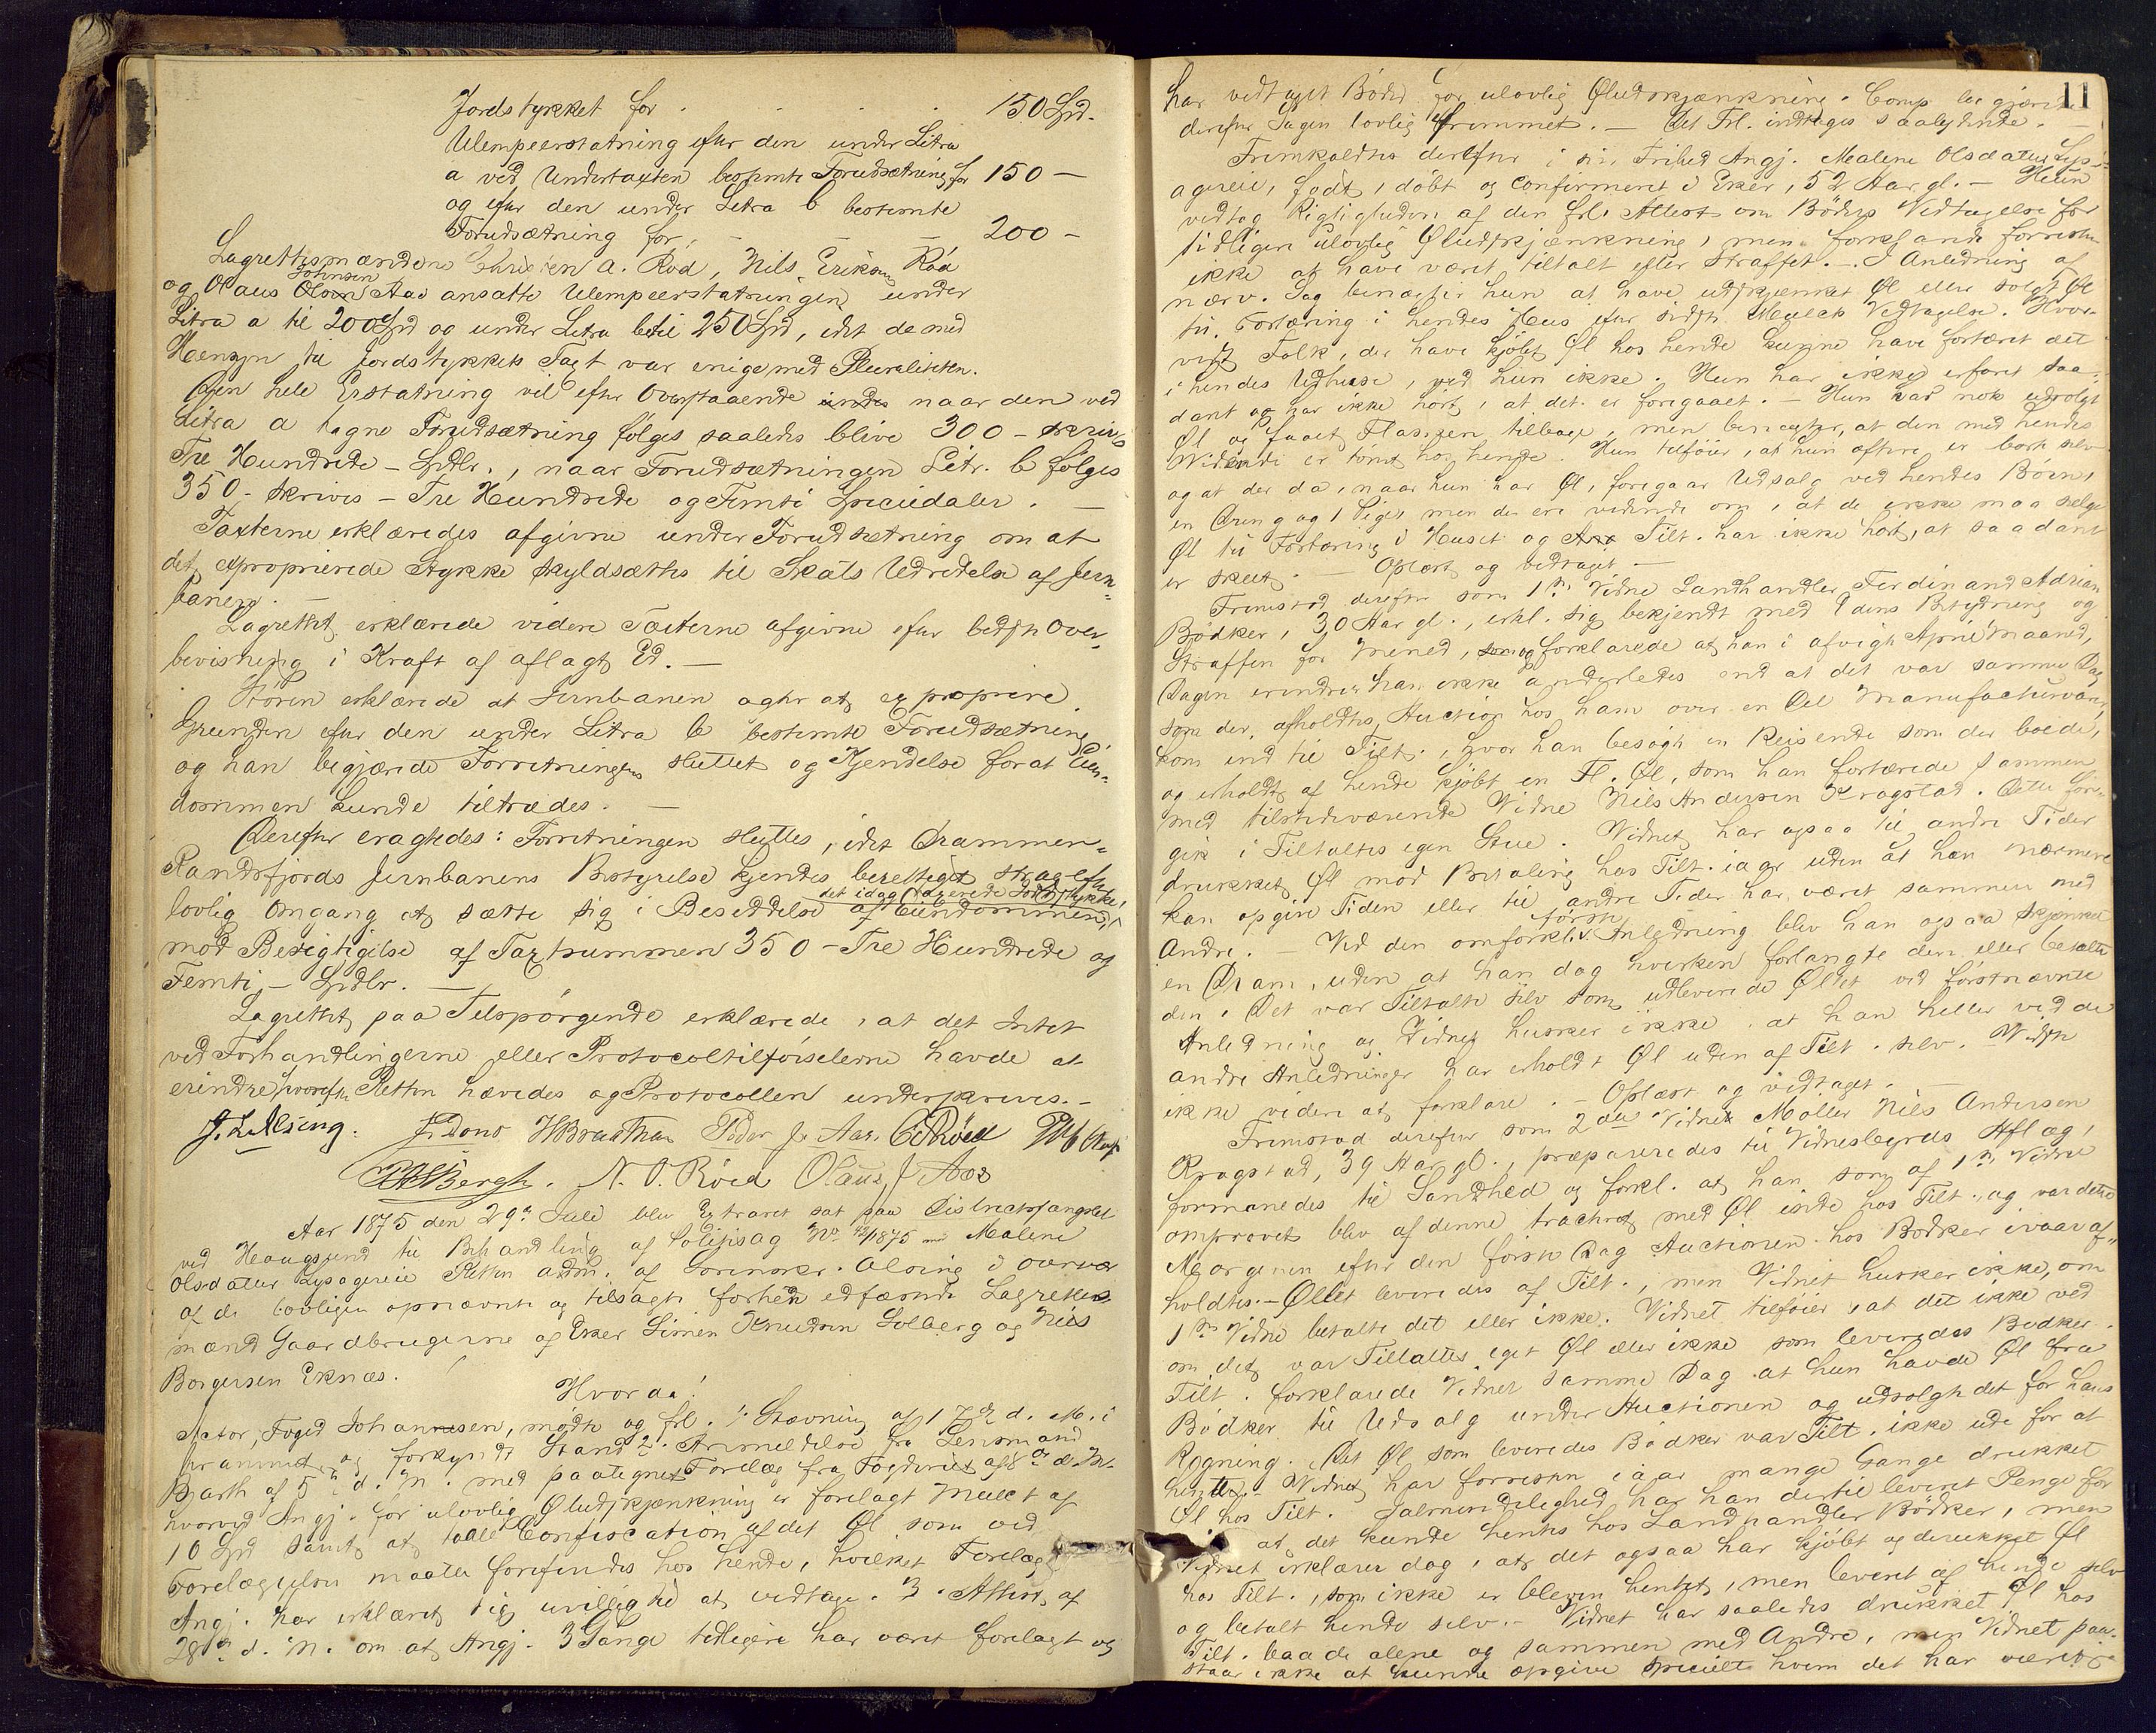 Jordstykket for . . . . 150 Spd.
Ulempeerstatning efter den under Litra
a ved Undertaxten bestemte Forudsætning for 150 —
og efter den under Litra b bestemte
Forudsætning for, — — — 200 —
Lagrettesmændene Christen A. Rød, Nils Eriksen Rød
og Olaus Johnsen Aas ansatte Ulempeerstatningen under
Litra a til 200 Spd og under Litra b til 250 Spd, idet de med
Hensyn til Jordstykkets Taxt var enige med Pluraliteten.
Den hele Erstatning vil efter Overstaaende naar den ved
Litra a tagne Forudsætning følges saaledes blive 300 - skrives
Tre Hundrede - Spdlr., naar Forudsætningen Litr. b følges
350 - skrives - Tre Hundrede og Femti Speciedaler. —
Taxterne erklæredes afgivne under Forudsætning om at
det exproprierede Stykke skyldsættes til Skats Udredelse af Jern-
banen. —
Lagrettet erklærede videre Taxterne afgivne efter bedste Over-
bevisning i Kraft af aflagt Ed. —
Støren erklærede at Jernbanen agter at expropriere
Grunden efter den under Litra b bestemte Forudsætning
og han begjærede Forretningen sluttet og Kjendelse for at Eien-
dommen kunde tiltrædes. —
Derefter eragtedes: Forretningen sluttes, idet Drammen-
Randsfjords Jernbanens Bestyrelse kjendes berettiget strax efter
lovlig Omgang at sætte sig i Besiddelse af det idag taxerede Jordstykke,
mod Berigtigelse af Taxtsummen 350 - Tre Hundrede og
Femti, - Spdlr. —
Lagrettet paa Tilspørgende erklærede, at det Intet
ved Forhandlingerne eller Protocoltilførselerne havde at
erindre hvorefter Retten hævedes og Protocollen underskreves. -
J. L. Alsing. H Braathen Peder J. Aas. C A Røed
Bergh. N. O. Röed Olaus J Aas
Aar 1875 den 29de Juli blev Extraret sat paa Districtsfængslet
ved Hougsund til Behandling af Politisag No 42/1875 mod Malene
Olsdatter Lysagereie Retten adm. af Sorenskr. Alsing i Overvær
af de lovligen opnævnte og tilsagte forhen edfæstede Lagrettes-
mænd Gaardbrugerne af Eker Simen Knudsen Solberg og Nils
Borgersen Eknæs.
Hvorda!
Actor, Foged Johannesen, mødte og frl. 1. Stævning af 17de d. M. i
hrammet og forkyndt Stand 2. Anmeldelse fra Lensmand
Barth af 5te d. M. med paategnet Forelæg fra Fogderiet af 8de d. M.
hvorved Angj. for ulovlig Øludskjænkning er forelagt Mulct af
10 Spd samt at taale Confiscation af det Øl som ved
Forelæggelsen maatte forefindes hos hende, hvilket Forelæg
Angj. har erklæret sig uvillig til at vedtage. 3. Attest af
28de d. M. om at Angj. 3 Gange tidligere har været forelagt og
11
har vedtaget Bøder for ulovlig Øludskjænkning. Comp. begjærede
derefter Sagen lovlig fremmet. — Det Frl. indtages saalydende. —
Fremkaldtes derefter i sin Frihed Angj. Malene Olsdatter Lys-
agereie, født, døbt og confirmeret i Eker, 52 Aar gl. — Hun
vedtog Rigtigheden af den frl. Attest om Bøders Vedtagelse for
tidligere ulovlig Øludskjænkning, men forklarede forresten
ikke at have været tiltalt eller straffet. — I Anledning af
nærv. Sag benægter hun at have udskjænket Øl eller solgt Øl
til Fortæring i hendes Hus efter sidste Mulcts Vedtagelse. Hvor-
vidt Folk, der have kjøbt Øl hos hende kunne have fortæret det
i hendes Udhuse, ved hun ikke. Hun har ikke erfaret saa-
dant og har ikke hørt, at det er foregaaet. — Hun har nok udsolgt
Øl og faaet Flasken tilbage, men benægter, at den med hendes
Vidende er tømt hos hende. Hun tilføier, at hun oftere er bort selv
og at der da, naar hun har Øl, foregaar Udsalg ved hendes Børn,
en Dreng og 1 Pige, men de ere vidende om, at de ikke maa sælge
Øl til Fortæring i Huset og Tilt. har ikke hørt, at saadant
er skeet. — Oplæst og vedtaget. —
Fremstod derefter som 1ste Vidne Landhandler Ferdinand Adrian
Bødker, 30 Aar gl., erkl. sig bekjendt med Edens Betydning og
Straffen for Mened, og forklarede at han i afvigte April Maaned,
Dagen erindrer han ikke anderledes end at det var samme Dag
som der afholdtes Auction hos ham over en Del Manufacturvarer,
kom ind til Tilt., hvor han besøgte en Reisende som der boede,
og erholdt af hende kjøbt en Fl. Øl, som han fortærede sammen
med tilstedeværende Vidne Nils Andersen Kragstad. Dette fore-
gik i Tiltaltes egen Stue. Vidnet har ogsaa til andre Tider
drukket Øl mod Betaling hos Tilt. iaar uden at han nærmere
kan opgive Tiden eller til andre Tider har været sammen med
Andre. — Ved den omforkl. første Anledning blev han ogsaa skjenket
en Dram, uden at han dog hverken forlangte den eller betalte
den. Det var Tiltalte selv som udleverede Øllet ved førstnævnte
Anledning og Vidnet husker ikke, at han heller ved de
andre Anledninger har erholdt Øl uden af Tilt. selv. Vidste
ikke videre at forklare. — Oplæst og vedtaget. —
Fremstod derefter som 2det Vidne Møller Nils Andersen
Kragstad, 39 Aar gl., præpareredes til Vidnesbyrds Aflæg,
formanedes til Sandhed og forkl. at han som af 1ste Vidne
omprovet blev af denne tracteret med Øl inde hos Tilt., og var dette
Morgenen efter den første Dag Auctionen hos Bødker ivaar af-
holdtes. — Øllet leveredes af Tilt., men Vidnet husker ikke, om
1ste Vidne betalte det eller ikke. Vidnet tilføier, at det ikke ved
om det var Tiltaltes eget Øl eller ikke som leveredes Bødker.
Tilt. forklarede Vidnet samme Dag at hun havde Øl fra
Bødker til Udsalg under Auctionen og udsolgte det for hans
Regning. Det Øl som leveredes Bødker var Tilt. ikke ude for at
hente. — Vidnet har forresten iaar mange Gange drukket
Øl hos Tilt. I Almindelighed har han dertil leveret Penge for
at det kunde hentes hos Landhandler Bødker, men
Vidnet erklærer dog, at det ogsaa har kjøbt og drukket Øl
hos Tilt., som ikke er bleven hentet, men leveret af hende selv
og betalt hende selv. — Vidnet har saaledes drukket Øl hos
Tilt. baade alene og sammen med Andre, men Vidnet paa-
staar ikke at kunne opgive specielt hvem det har været.